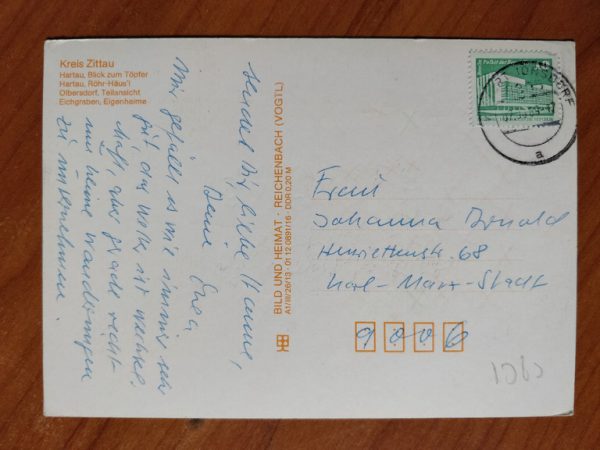 Kreis Zittau
Hartau, Blick zum Töpfer
Hartau, Röhr-Häus'l
Olbersdorf, Teilansicht
Eichgraben, Eigenheime
Mir gefällt es wie immer sehr
gut, das Wetter ist wechsel-
haft, aber grade recht
um kleine Wanderungen
zu unternehmen.
sendet Dir, liebe Hanne,
Deine
BILD UND HEIMAT · REICHENBACH (VOGTL)
A1/III/26/13 · 01 12 0891/16 · DDR 0,20 M
Frau
Johanna
Henriettenstr. 68
Karl-Marx-Stadt
9006
a